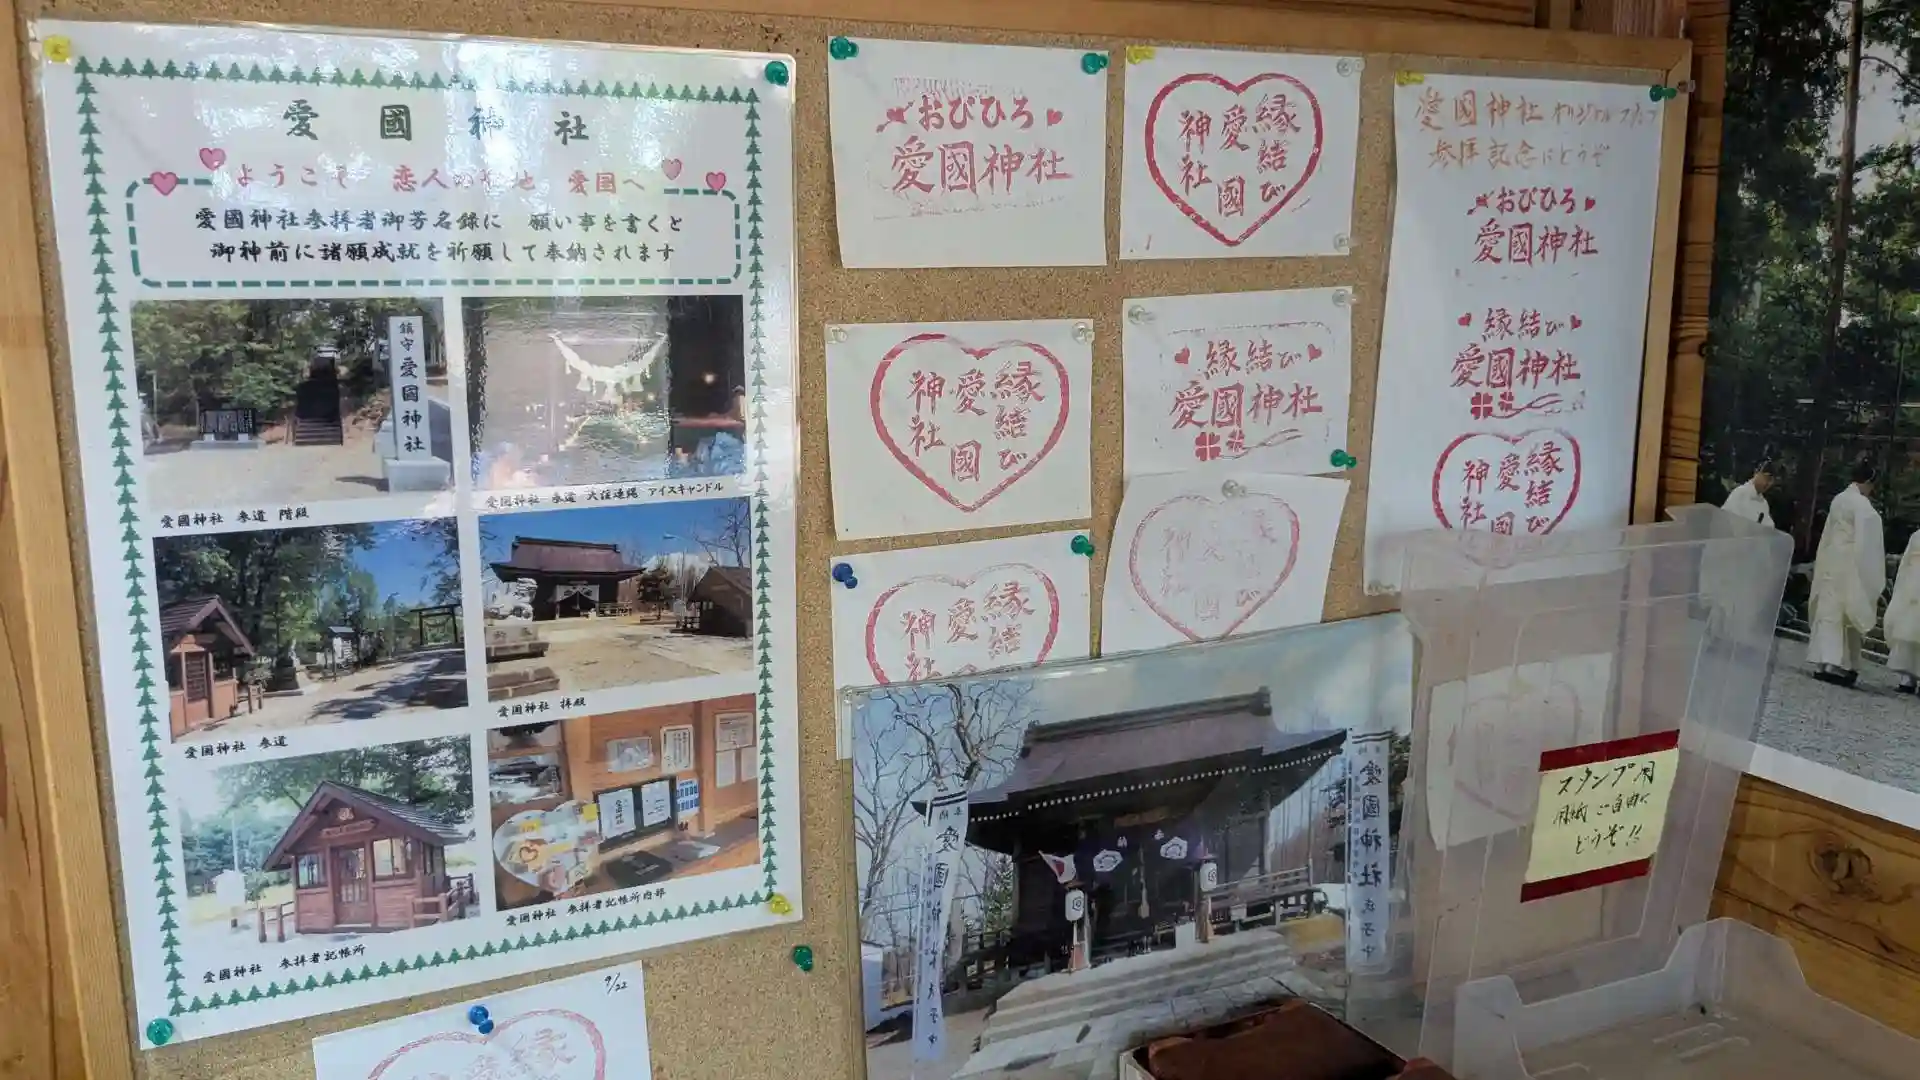 愛國神社
ようこそ 恋人の聖地 愛国へ
愛國神社参拝者御芳名録に 願い事を書くと
御神前に諸願成就を祈願して奉納されます
鎮守 愛國神社
愛國神社 参道 階段
愛國神社 参道 大注連縄 アイスキャンドル
愛國神社 参道
愛國神社 拝殿
愛國神社 参拝者記帳所
愛國神社 参拝者記帳所内部
9/22
縁
おびひろ
愛國神社
縁結び
愛國
神社
縁結び
愛國
神社
縁結び
愛國神社
縁結
愛
神社
愛國神社 オリジナルスタンプ
参拝記念にどうぞ
おびひろ
愛國神社
縁結び
愛國神社
縁結び
愛國
神社
愛國神社
スタンプ用
用紙ご自由に
どうぞ!!